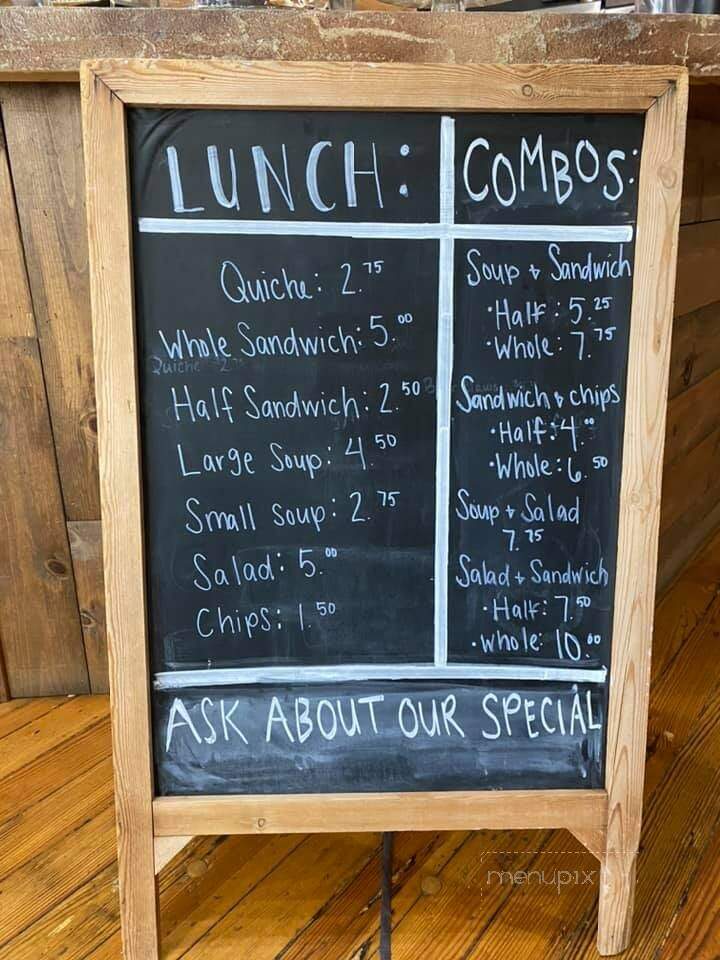 LUNCH:
Quiche: 2.75
Whole Sandwich: 5.00
Quiche 2
Half Sandwich: 2.50
Large Soup: 4.50
Small Soup: 2.75
Salad: 5.00
Chips: 1.50
COMBOS:
Soup + Sandwich
•Half: 5.25
•Whole: 7.75
Sandwich & chips
•Half: 4.00
•Whole: 6.50
Soup + Salad
7.75
Salad + Sandwich
•Half: 7.50
•Whole: 10.00
ASK ABOUT OUR SPECIAL
menupix